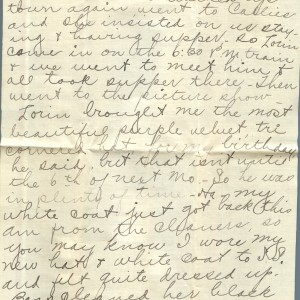 town again went to Callies
and she insisted on us stay-
ing & having supper. So Lorin
come in on the 6:30 P.M train
& we went to meet him, &
all took supper there - then
went to the picture show -
Lorin brought me the most
beautiful purple velvet, tri
cornered hat for my birthday
he said, but that isn't until
the 6th of next Mo. So he was
in plenty of time - Ha - my
white coat just got back this
am from the cleaners, so
you may know I wore my
new hat & white coat to S.S.
and felt quite dressed up.
cleaned her black